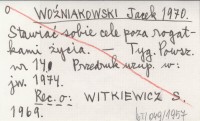 WOŹNIAKOWSKI Jacek 1970.
Stawiać sobie cele poza rogat-
kami życia. — Tyg. Powsz.
nr 14. Przedruk uzup. w:
jw. 1974.
Rec. o: WITKIEWICZ S.
1969.